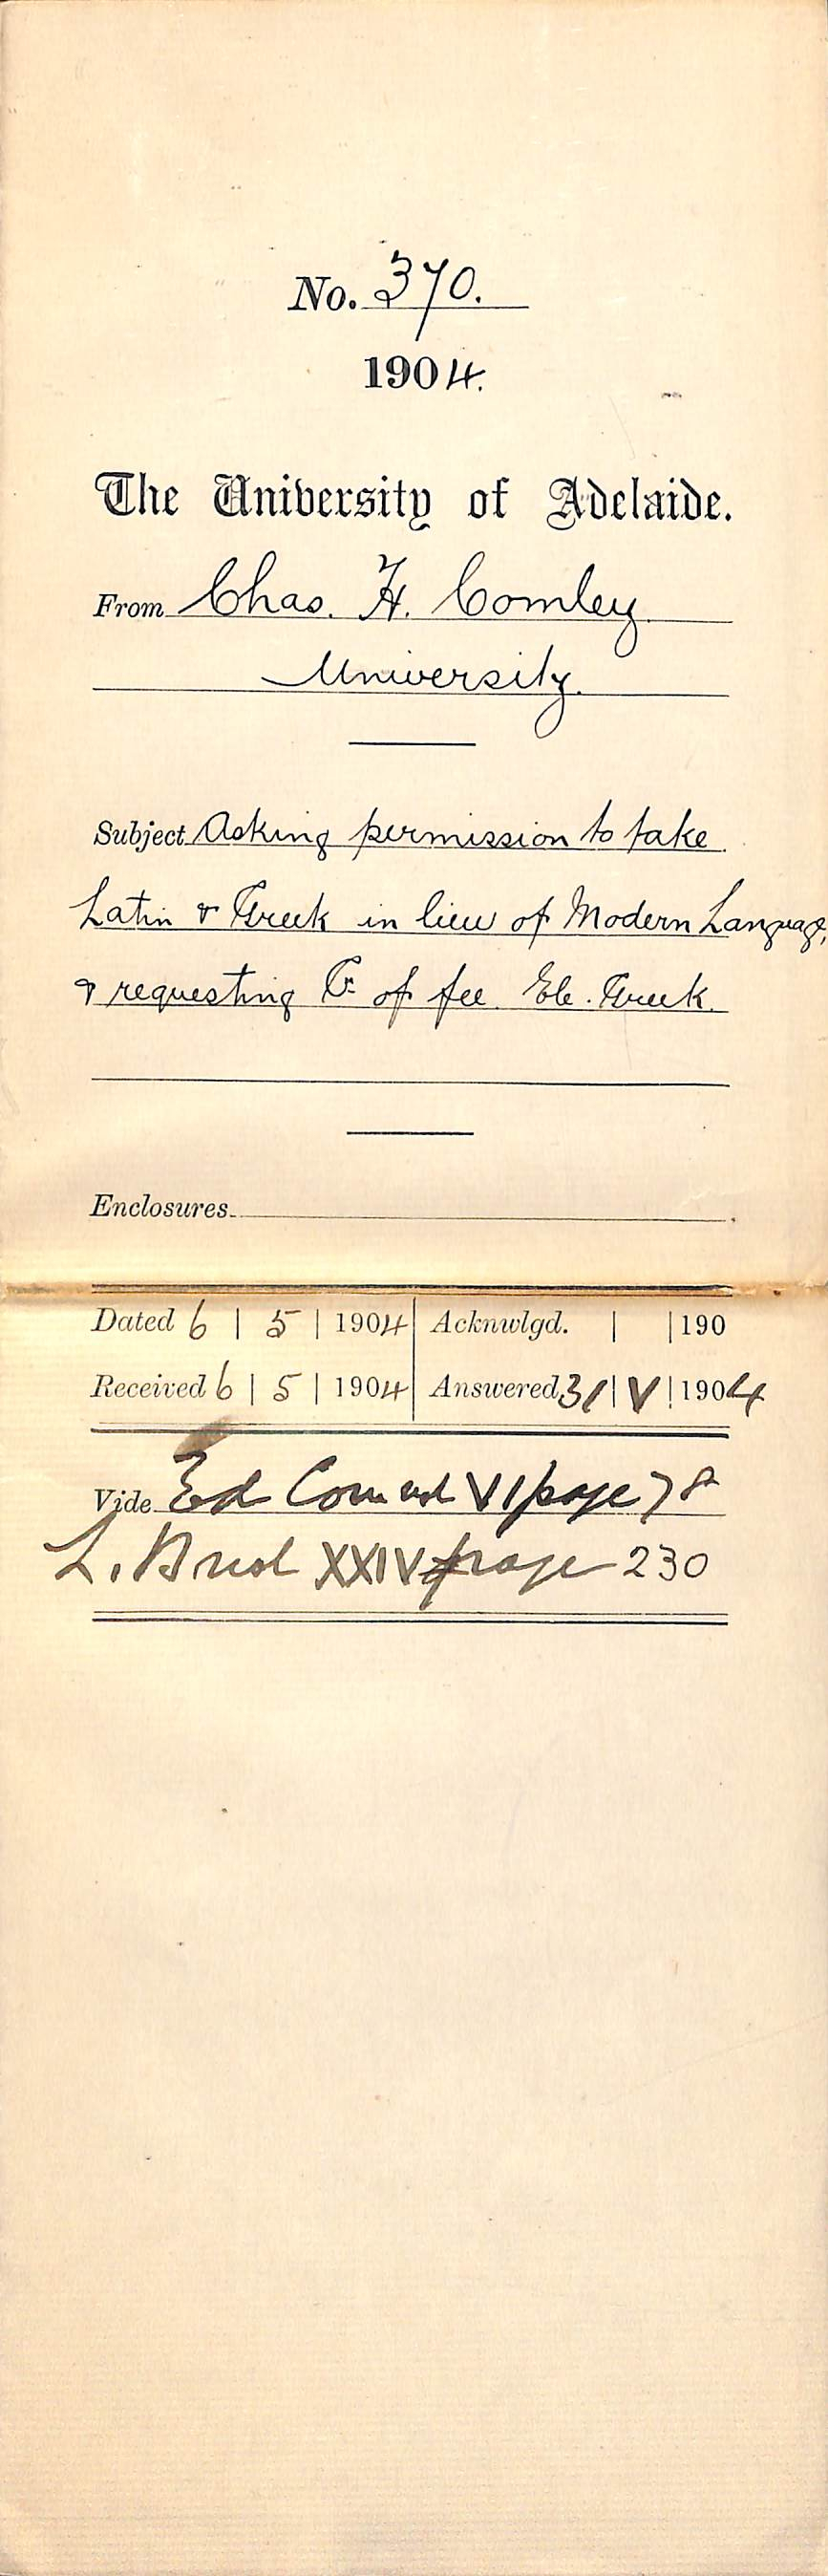 No. 370.
1904.
The University of Adelaide.
From Chas. H. Comley
University.
Subject Asking permission to take
Latin & Greek in lieu of Modern Language,
& requesting of fee Ele. Greek.
Enclosures
Dated 6 | 5 | 1904 Acknwlgd. | | 190
Received 6 | 5 | 1904 Answered 31 | V | 1904
Vide Ed Com VI page 78
L. XXIV page 230